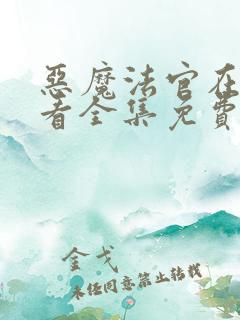 惡魔法官在
看全集免費
金戈
未经同意禁止转载